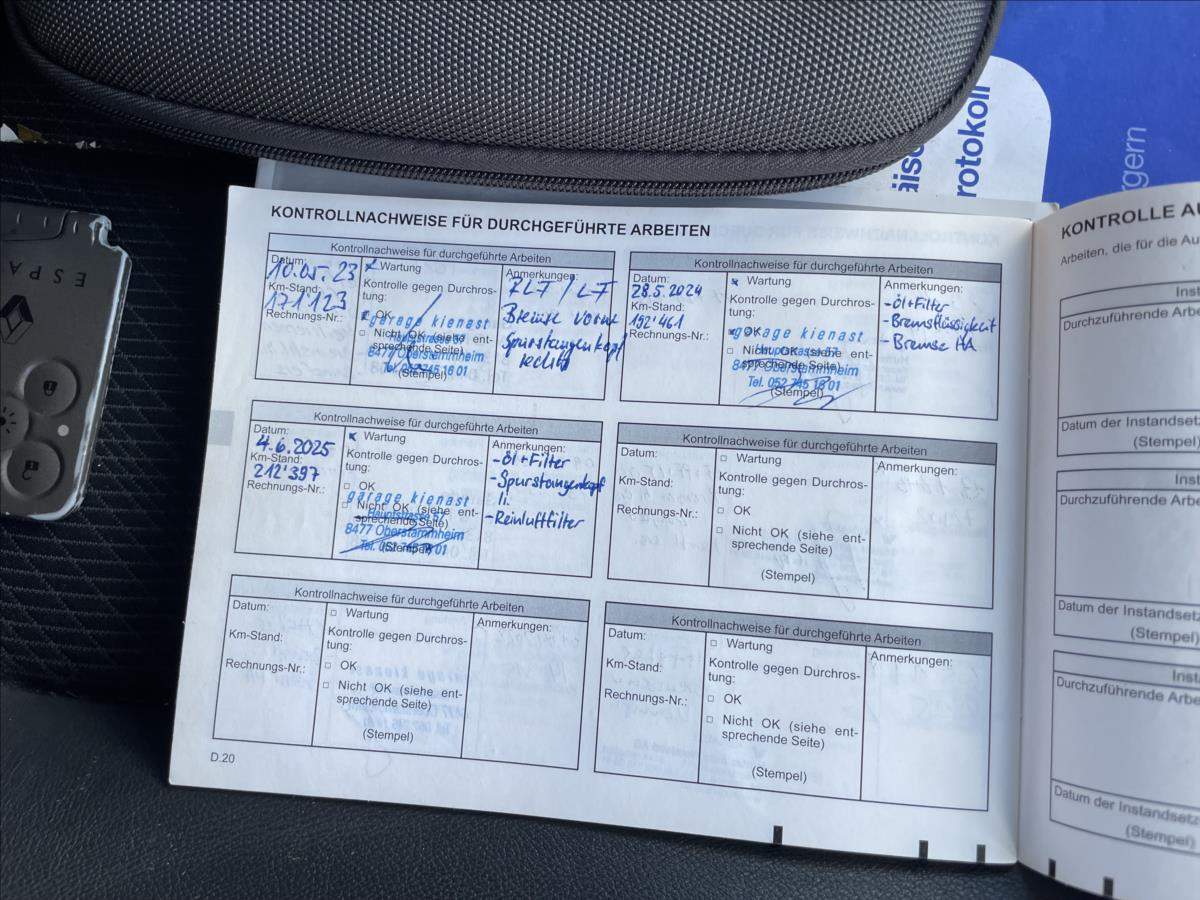 rotokoll
rgern
ESPA
KONTROLLNACHWEISE FÜR DURCHGEFÜHRTE ARBEITEN
Kontrollnachweise für durchgeführte Arbeiten
Datum:
10.05.23
Km-Stand:
171'123
Rechnungs-Nr.:
Wartung
Kontrolle gegen Durchros-
tung:
OK
Nicht OK (siehe ent-
sprechende Seite)
garage kienast
Hauptstrasse 57
8477 Oberstammheim
Tel. 052 745 16 01
(Stempel)
Anmerkungen:
RLF / LF
Bremse vorne
Spurstangenkopf
rechts
Kontrollnachweise für durchgeführte Arbeiten
Datum:
28.5.2024
Km-Stand:
192'461
Rechnungs-Nr.:
Wartung
Kontrolle gegen Durchros-
tung:
OK
Nicht OK (siehe ent-
sprechende Seite)
garage kienast
Hauptstrasse 57
8477 Oberstammheim
Tel. 052 745 16 01
(Stempel)
Anmerkungen:
-Öl+Filter
-Bremsflüssigkeit
-Bremse HA
Kontrollnachweise für durchgeführte Arbeiten
Datum:
4.6.2025
Km-Stand:
212'397
Rechnungs-Nr.:
Wartung
Kontrolle gegen Durchros-
tung:
OK
Nicht OK (siehe ent-
sprechende Seite)
garage kienast
Hauptstrasse 57
8477 Oberstammheim
Tel. 052 745 16 01
(Stempel)
Anmerkungen:
-Öl+Filter
-Spurstangenkopf
li.
-Reinluftfilter
Kontrollnachweise für durchgeführte Arbeiten
Datum:
Km-Stand:
Rechnungs-Nr.:
Wartung
Kontrolle gegen Durchros-
tung:
OK
Nicht OK (siehe ent-
sprechende Seite)
(Stempel)
Anmerkungen:
Kontrollnachweise für durchgeführte Arbeiten
Datum:
Km-Stand:
Rechnungs-Nr.:
Wartung
Kontrolle gegen Durchros-
tung:
OK
Nicht OK (siehe ent-
sprechende Seite)
(Stempel)
Anmerkungen:
Kontrollnachweise für durchgeführte Arbeiten
Datum:
Km-Stand:
Rechnungs-Nr.:
Wartung
Kontrolle gegen Durchros-
tung:
OK
Nicht OK (siehe ent-
sprechende Seite)
(Stempel)
Anmerkungen:
D.20
KONTROLLE AU
Arbeiten, die für die Au
Inst
Durchzuführende Arbe
Datum der Instandsetz
(Stempel)
Inst
Durchzuführende Arbe
Datum der Instandsetz
(Stempel)
Inst
Durchzuführende Arbe
Datum der Instandsetz
(Stempel)